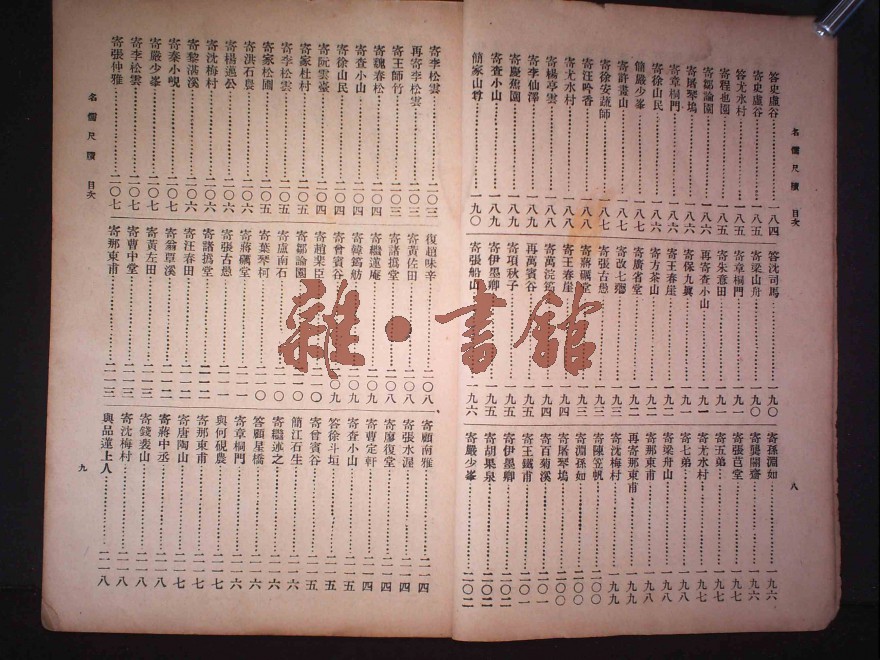 名儒尺牘 目次
八
答史虛谷……一八四
寄史虛谷……一八五
答尤水村……一八五
寄程也園……一八五
寄鄒論園……一八六
寄屠琴塢……一八六
寄章桐門……一八六
寄徐山民……一八六
簡嚴少峯……一八七
寄許畫山……一八七
寄徐安蔬師……一八七
寄汪吟香……一八八
寄尤水村……一八八
寄楊亭雲……一八八
寄李仙澤……一八九
寄嚴蕉園……一八九
寄查小山……一八九
簡家山尊……一九〇
答沈司馬……一九〇
寄梁山舟……一九〇
寄章桐門……一九一
寄朱意田……一九一
再寄查小山……一九一
寄保九巽……一九一
寄王春崖……一九二
寄方茶山……一九二
寄廣省堂……一九二
寄改七薌……一九三
寄張古愚……一九三
寄蔣礪堂……一九三
寄王春崖……一九四
寄萬浣筠……一九四
再萬賓谷……一九五
寄項秋子……一九五
寄伊墨卿……一九五
寄張船山……一九六
寄孫淵如……一九六
寄龔闇齋……一九六
寄張芑堂……一九七
寄五弟……一九七
寄尤水村……一九七
寄七弟……一九八
寄梁舟山……一九八
寄那東甫……一九八
再寄那東甫……一九九
寄沈梅村……一九九
寄陳笠帆……二〇〇
寄淵孫如……二〇〇
寄屠琴塢……二〇〇
寄百菊溪……二〇一
寄王鐵甫……二〇一
寄伊墨卿……二〇二
寄胡果泉……二〇二
寄嚴少峯……二〇二
寄李松雲……二〇三
再寄李松雲……二〇三
寄王師竹……二〇三
寄魏春松……二〇四
寄查小山……二〇四
寄徐山民……二〇四
寄阮雲臺……二〇四
寄家杜村……二〇五
寄李松雲……二〇五
寄家松圃……二〇五
寄洪石農……二〇六
寄楊邁公……二〇六
寄沈梅村……二〇六
寄黎湛溪……二〇六
寄秦小峴……二〇七
寄嚴少峯……二〇七
寄李松雲……二〇七
寄張仲雅……二〇七
復趙味辛……二〇八
寄黃佐田……二〇八
寄諸撝堂……二〇八
寄繼蓮庵……二〇九
寄韓鶴舫……二〇九
寄曾賓谷……二〇九
寄趙棐臣……二一〇
寄鄒論園……二一〇
寄盧南石……二一〇
寄葉琴柯……二一〇
寄蔣礪堂……二一一
寄張古愚……二一一
寄諸撝堂……二一一
寄汪春田……二一二
寄翁覃溪……二一二
寄黃左田……二一三
寄曹中堂……二一三
寄那東甫……二一三
寄顧南雅……二一四
寄張水渥……二一四
寄廖復堂……二一四
寄曹定軒……二一四
寄查小山……二一五
答徐斗垣……二一五
寄曾賓谷……二一五
簡江石生……二一六
寄繼述之……二一六
答顧星橋……二一六
寄章桐門……二一六
與何硯農……二一七
寄那東甫……二一七
寄唐陶山……二一七
寄蔣中丞……二一八
寄錢裴山……二一八
寄沈梅村……二一八
與品蓮上人……二一八
名儒尺牘 目次
九
雜·書館